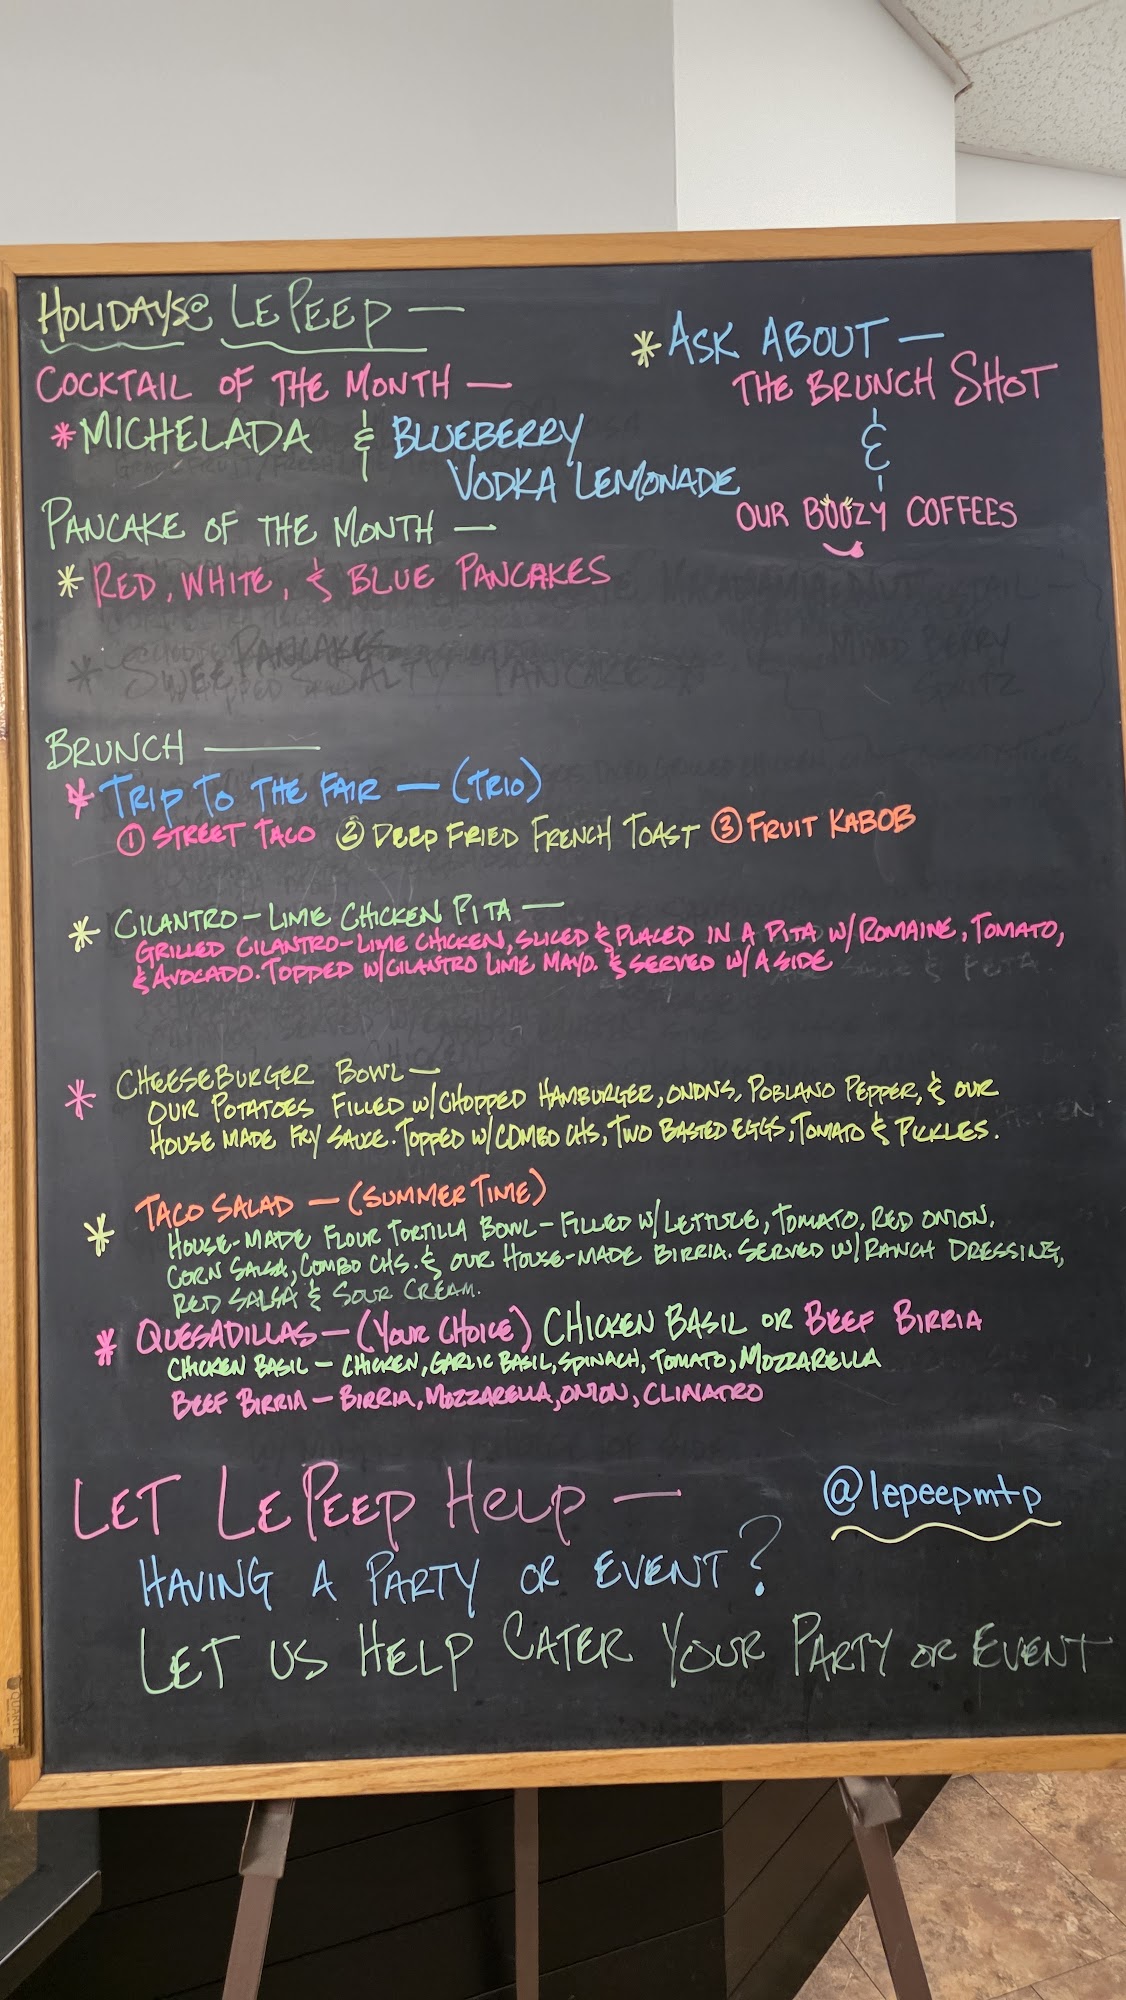 HOLIDAYS@ LE PEEP —
COCKTAIL OF THE MONTH —
*MICHELADA & BLUEBERRY
VODKA LEMONADE
PANCAKE OF THE MONTH —
*RED, WHITE, & BLUE PANCAKES
*ASK ABOUT —
THE BRUNCH SHOT
&
OUR BOOZY COFFEES
BRUNCH —
*TRIP TO THE FAIR — (TRIO)
① STREET TACO ② DEEP FRIED FRENCH TOAST ③ FRUIT KABOB
*CILANTRO-LIME CHICKEN PITA —
GRILLED CILANTRO-LIME CHICKEN, SLICED & PLACED IN A PITA W/ROMAINE, TOMATO,
& AVOCADO. TOPPED W/CILANTRO LIME MAYO. & SERVED W/ A SIDE
*CHEESEBURGER BOWL —
OUR POTATOES FILLED W/CHOPPED HAMBURGER, ONIONS, POBLANO PEPPER, & OUR
HOUSE MADE FRY SAUCE. TOPPED W/COMBO CHS, TWO BASTED EGGS, TOMATO & PICKLES.
*TACO SALAD — (SUMMER TIME)
HOUSE-MADE FLOUR TORTILLA BOWL - FILLED W/LETTUCE, TOMATO, RED ONION,
CORN SALSA, COMBO CHS. & OUR HOUSE-MADE BIRRIA. SERVED W/RANCH DRESSING,
RED SALSA & SOUR CREAM.
*QUESADILLAS — (YOUR CHOICE) CHICKEN BASIL OR BEEF BIRRIA
CHICKEN BASIL — CHICKEN, GARLIC BASIL, SPINACH, TOMATO, MOZZARELLA
BEEF BIRRIA — BIRRIA, MOZZARELLA, ONION, CLINATRO
LET LE PEEP HELP —
@lepeepmtp
HAVING A PARTY OR EVENT?
LET US HELP CATER YOUR PARTY OR EVENT